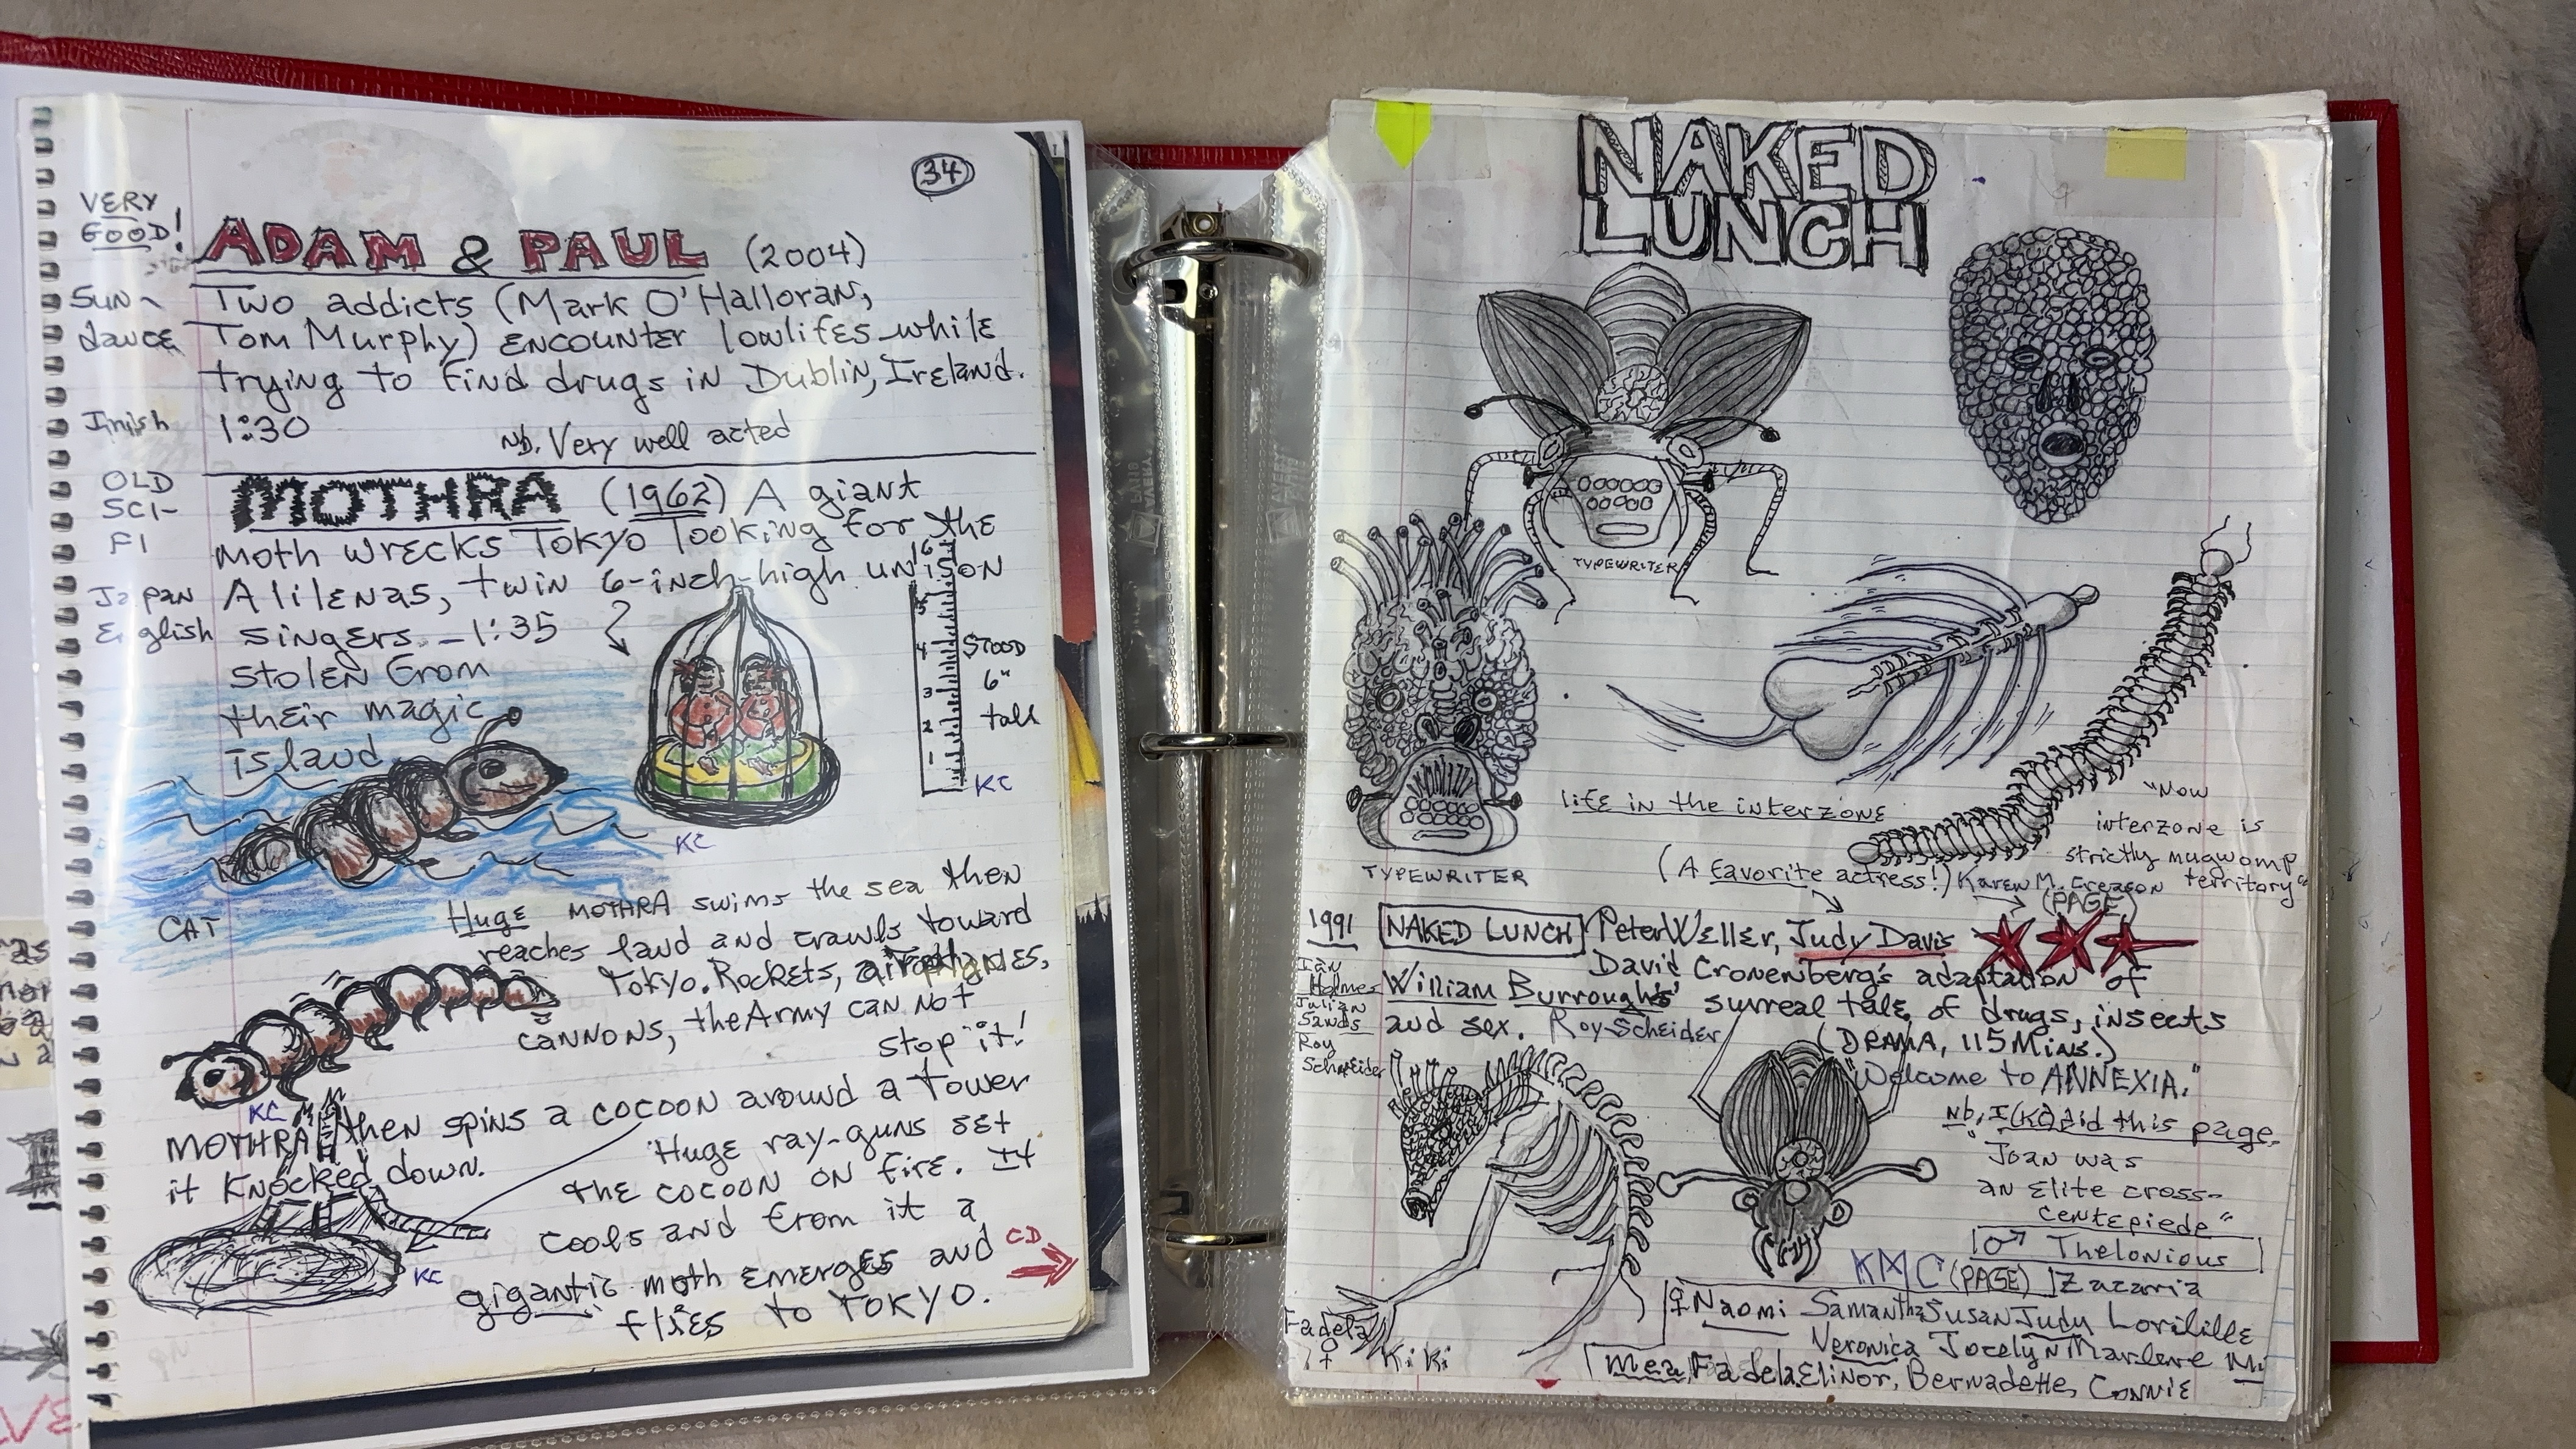 34
VERY
GOOD!
ADAM & PAUL (2004)
Sun-
dance
Two addicts (Mark O'Halloran,
Tom Murphy) encounter lowlifes while
trying to find drugs in Dublin, Ireland.
1:30
Nb. Very well acted
OLD
SCI-
FI
MOTHRA (1962) A giant
moth wrecks Tokyo looking for the
Japan
English
Alilenas, twin 6-inch-high unison
singers - 1:35
stolen from
their magic
island.
6
5
4
3
2
1
STOOD
6"
tall
KC
KC
CAT
Huge MOTHRA swims the sea then
reaches land and crawls toward
Tokyo. Rockets, airplanes,
cannons, the Army can not
stop "it!
KC
MOTHRA then spins a cocoon around a tower
it knocked down.
Huge ray-guns set
the cocoon on fire. It
cools and from it a
gigantic moth emerges and
flies to TOKYO.
CD
KC
NAKED
LUNCH
TYPEWRITER
TYPEWRITER
life in the interzone
"Now
interzone is
strictly mugwomp
territory"
(A favorite actress!) Karen M.
(PAGE)
1991 NAKED LUNCH Peter Weller, Judy Davis
David Cronenberg's adaptation of
William Burrough's' surreal tale of drugs, insects
and sex. Roy Scheider
(DRAMA, 115 Mins.)
Ian
Holmes
Julian
Sands
Roy
Scheider
"Welcome to ANNEXIA."
Nb, I (KC) did this page.
"Joan was
an elite cross-
centepiede"
♂ Thelonious
KMC (PAGE) Zacaria
♀ Naomi Samantha Susan Judy Lorilille
Veronica Jocelyn Marlene
Fadela
♀
Kiki
Mea, Fadela, Elinor, Bernadette, Connie